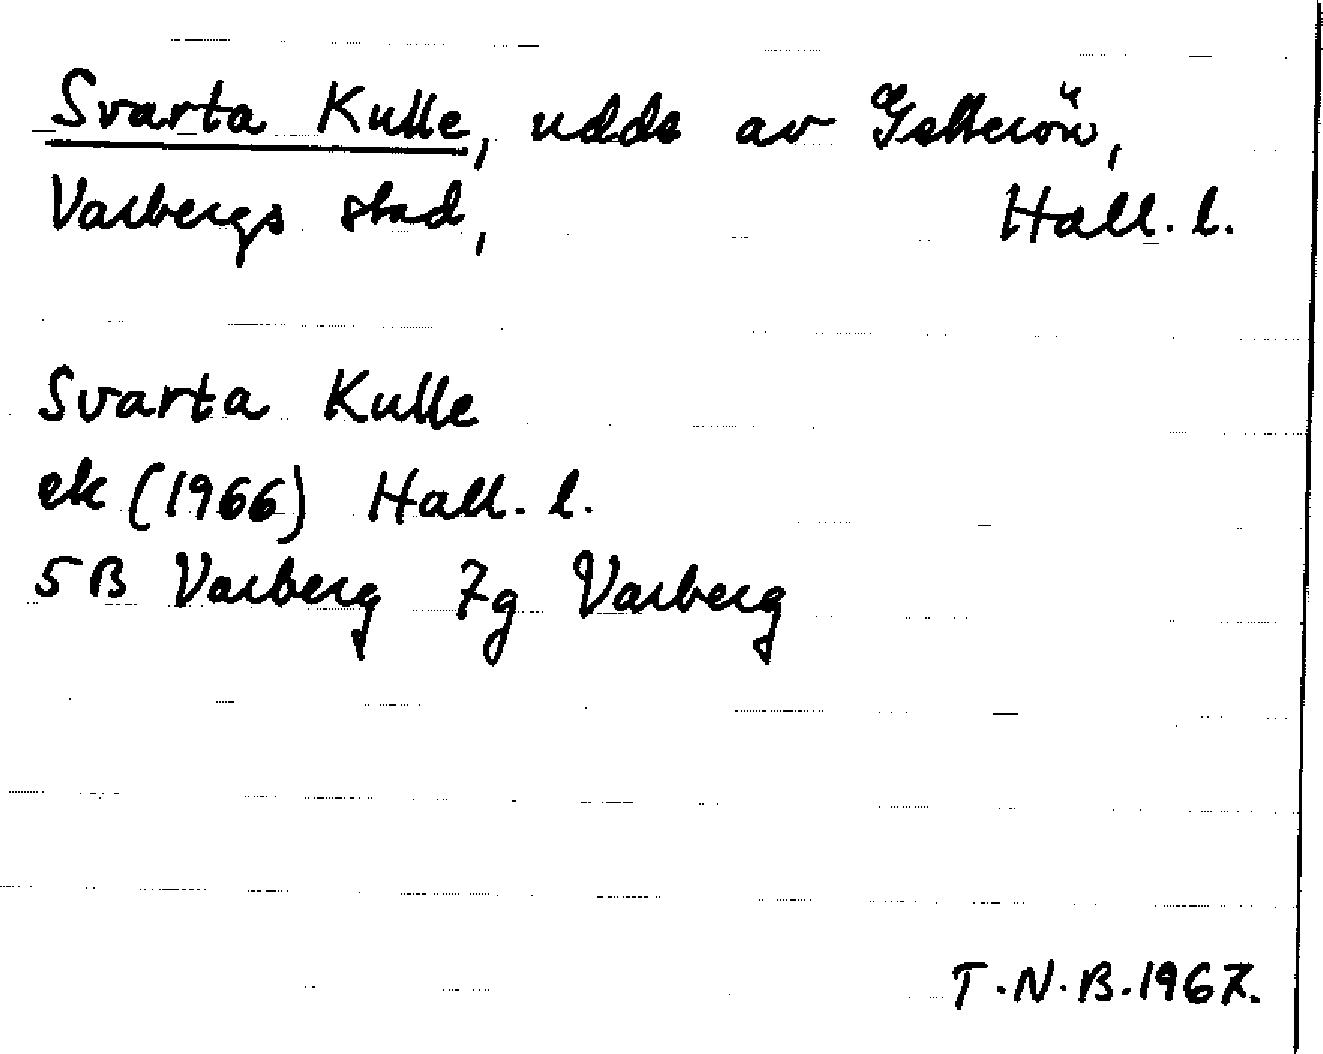 Svarta Kulle, udde av Getterön,
Varbergs stad, Hall. l.
Svarta Kulle
ek (1966) Hall. l.
5B Varberg 7g Varberg
T.N.B. 1967.